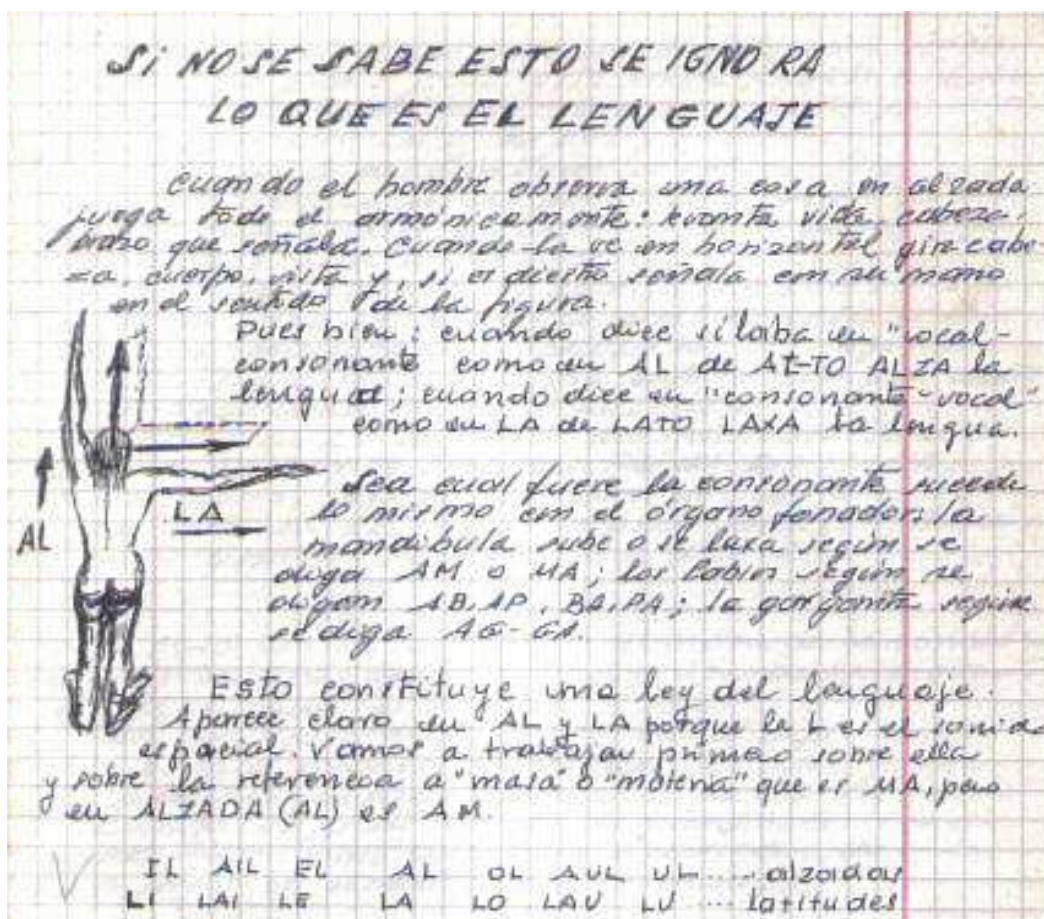 SI NO SE SABE ESTO SE IGNORA
LO QUE ES EL LENGUAJE
Cuando el hombre observa una cosa en alzada
juega todo el armónicamente: levanta vista, cabeza,
brazo que señala. Cuando la ve en horizontal gira cabe-
za, cuerpo, vista y, si es diestro señala con su mano
en el sentido de la figura.
Pues bien; cuando dice sílaba en "vocal-
consonante como en AL de AL-TO ALZA la
lengua; cuando dice en "consonante-vocal"
como en LA de LATO LAXA la lengua.
Sea cual fuere la consonante sucede
lo mismo con el órgano fonador: la
mandíbula sube o se laxa según se
diga AM o MA; los labios según se
digan AB, AP, BA, PA; la garganta según
se diga AG-GA.
AL
LA
Esto constituye una ley del lenguaje.
Aparece claro en AL y LA porque la L es el sonido
espacial. Vamos a trabajar primero sobre ella
y sobre la referencia a "masa" o "materia" que es MA, pero
en ALZADA (AL) es AM.
IL AIL EL AL OL AUL UL .... alzadas
LI LAI LE LA LO LAU LU ... latitudes